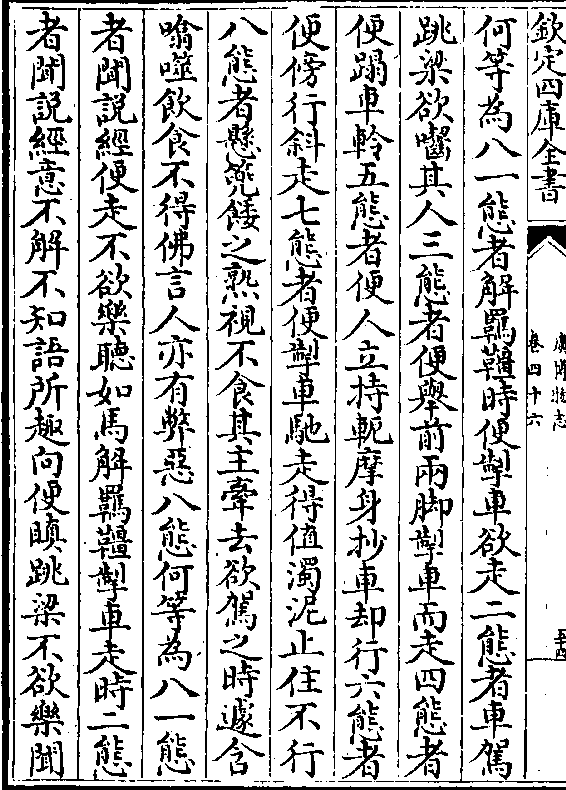 欽定四庫全書
廣博物志
卷四十六
何等為八一態者解羈韁時便掣車欲走二態者車駕
跳梁欲嚙其人三態者便舉前兩脚掣車而走四態者
便蹋車軨五態者便人立持軛摩身抄車却行六態者
便傍行斜走七態者便掣車馳走得值濁泥止住不行
八態者懸篼餧之熟視不食其主牽去欲駕之時遽含
噏噬飲食不得佛言人亦有弊惡八態何等為八一態
者聞說經便走不欲樂聽如馬解羈韁掣車走時二態
者聞說經意不解不知語所趣向便瞋跳梁不欲樂聞